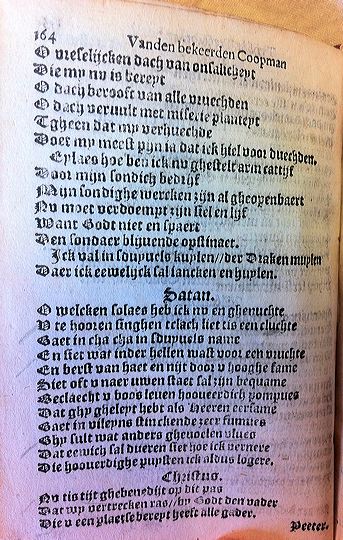 164
Vanden bekeerden Coopman
O vreselijcken dach van onsalicheyt
Die my nu is bereyt
O dach berooft van alle vruechden
O dach vervult met miserie planteyt
Tgheen dat my verhuechde
Doer my meest pijn ia dat ick hiel voor duechden.
Eylaes hoe ben ick nv ghestelt arm cattijf
Door mijn sondich bedrijf
Mijn sondighe wercken zijn al gheopenbaert
Nv moet verdoempt zijn siel en lijf
Want Godt niet en spaert
Den sondaer blijuende opstinaet.
Ick val in sduyuels kuylen//der Draken muylen
Daer ick eewelijck sal iancken en huylen.
Satan.
O welcken solaes heb ick nv en ghenuchte
V te hooren singhen tclach liet tis een cluchte
Gaet in cha cha in sduyuels name
En siet wat inder hellen wast voor een vruchte
En berst van haet en nijt door v hooghe fame
Siet oft v naer uwen staet sal zijn bequame
Beclaecht v boos leuen hooueerdich pompues
Dat ghy gheleyt hebt als Heeren eersame
Gaet in vileyns stinckende zeer fumues
Ghy sult wat anders ghevoelen vlues
Dat eewich sal dueren siet hoe ick vernere
Die hoouerdighe puysten ick aldus logere.
Christus.
Nv tis tijt ghebenedijt op dit pas
Dat wy vertrecken ras//by Godt den vader
Die v een plaetse bereyt heeft alle gader.
Peeter.